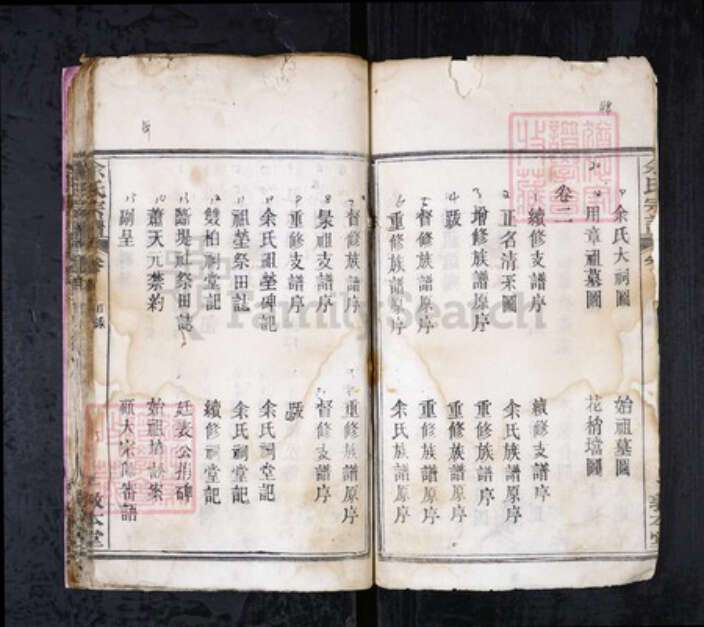 余氏大祠圖 始祖墓圖
用章祖墓圖 花梢壋圖
卷二
續修支譜序 續修支譜序
正名清釆圖 余氏族譜原序
增修族譜原序 重修族譜序
跋 重修族譜原序
督修族譜原序 重修族譜原序
重修族譜原序 余氏族譜原序
督修族譜序 重修族譜原序
景祖支譜序 督修支譜序
重修支譜序 跋
余氏祖塋碑記 余氏祠堂記
祖塋祭田誌 余氏祠堂記
雙柏祠堂記 續修祠堂記
路堤社祭田誌 廷表公捐碑
蕭天元禁約 始祖墳案
刷呈 大宗師審語
余氏宗譜
敦本堂
FamilySearch